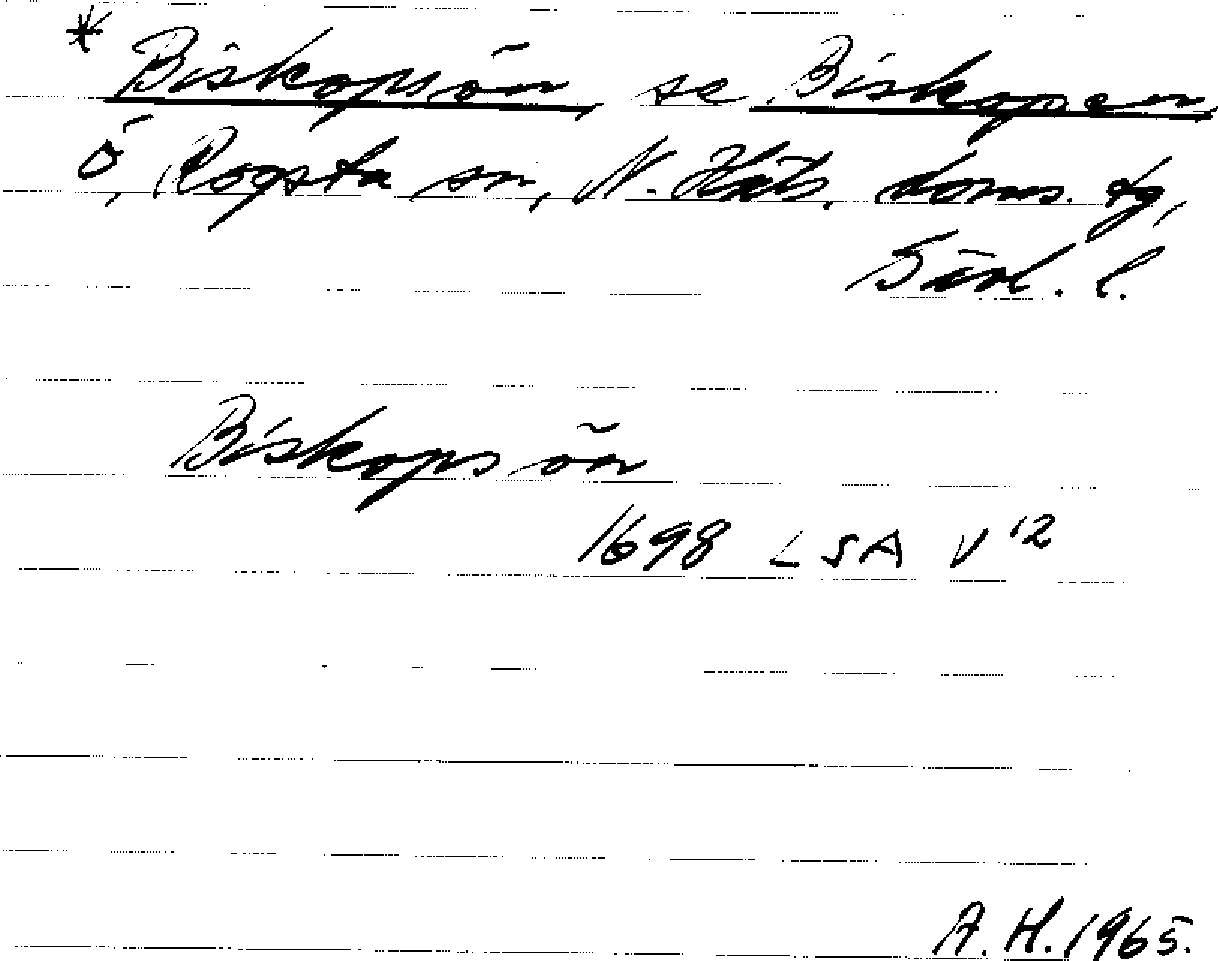 * Biskopsön, se Biskopen,
ö, Rogsta sn, N. Häls. doms. tg,
Gävl. l.
Biskopsön
1698 LSA V 12
A. H. 1965.